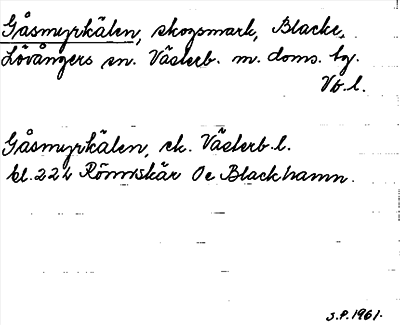 Gåsmyrkälen, skogsmark, Blacke,
Lövångers sn. Västerb. m. doms. tg.
Vb. l.
Gåsmyrkälen, ek. Västerb. l.
bl. 22 h Rönnskär Oe Blackhamn.
S.P. 1961.